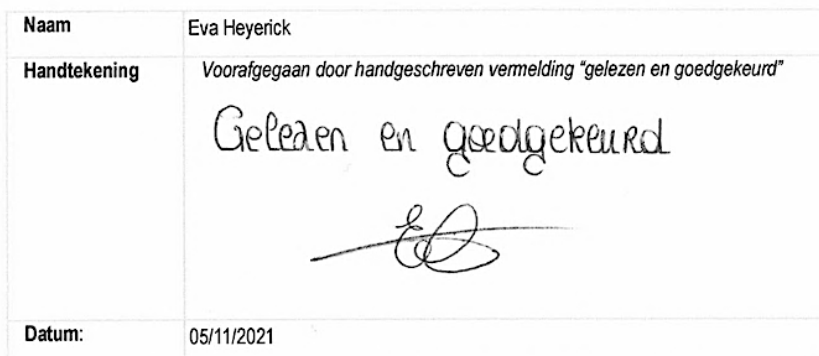 Naam Eva Heyerick
Handtekening Voorafgegaan door handgeschreven vermelding “gelezen en goedgekeurd”
Gelezen en goedgekeurd
Datum: 05/11/2021